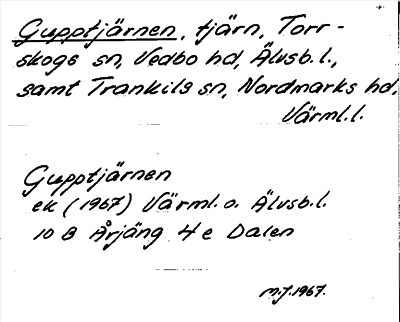 Gupptjärnen, tjärn, Torr-
skogs sn, Vedbo hd, Älvsb.l.,
samt Trankils sn, Nordmarks hd,
Värml.l.
Gupptjärnen
ek (1967) Värml. o. Älvsb.l.
10 B Årjäng 4 e Dalen
M.J. 1967.